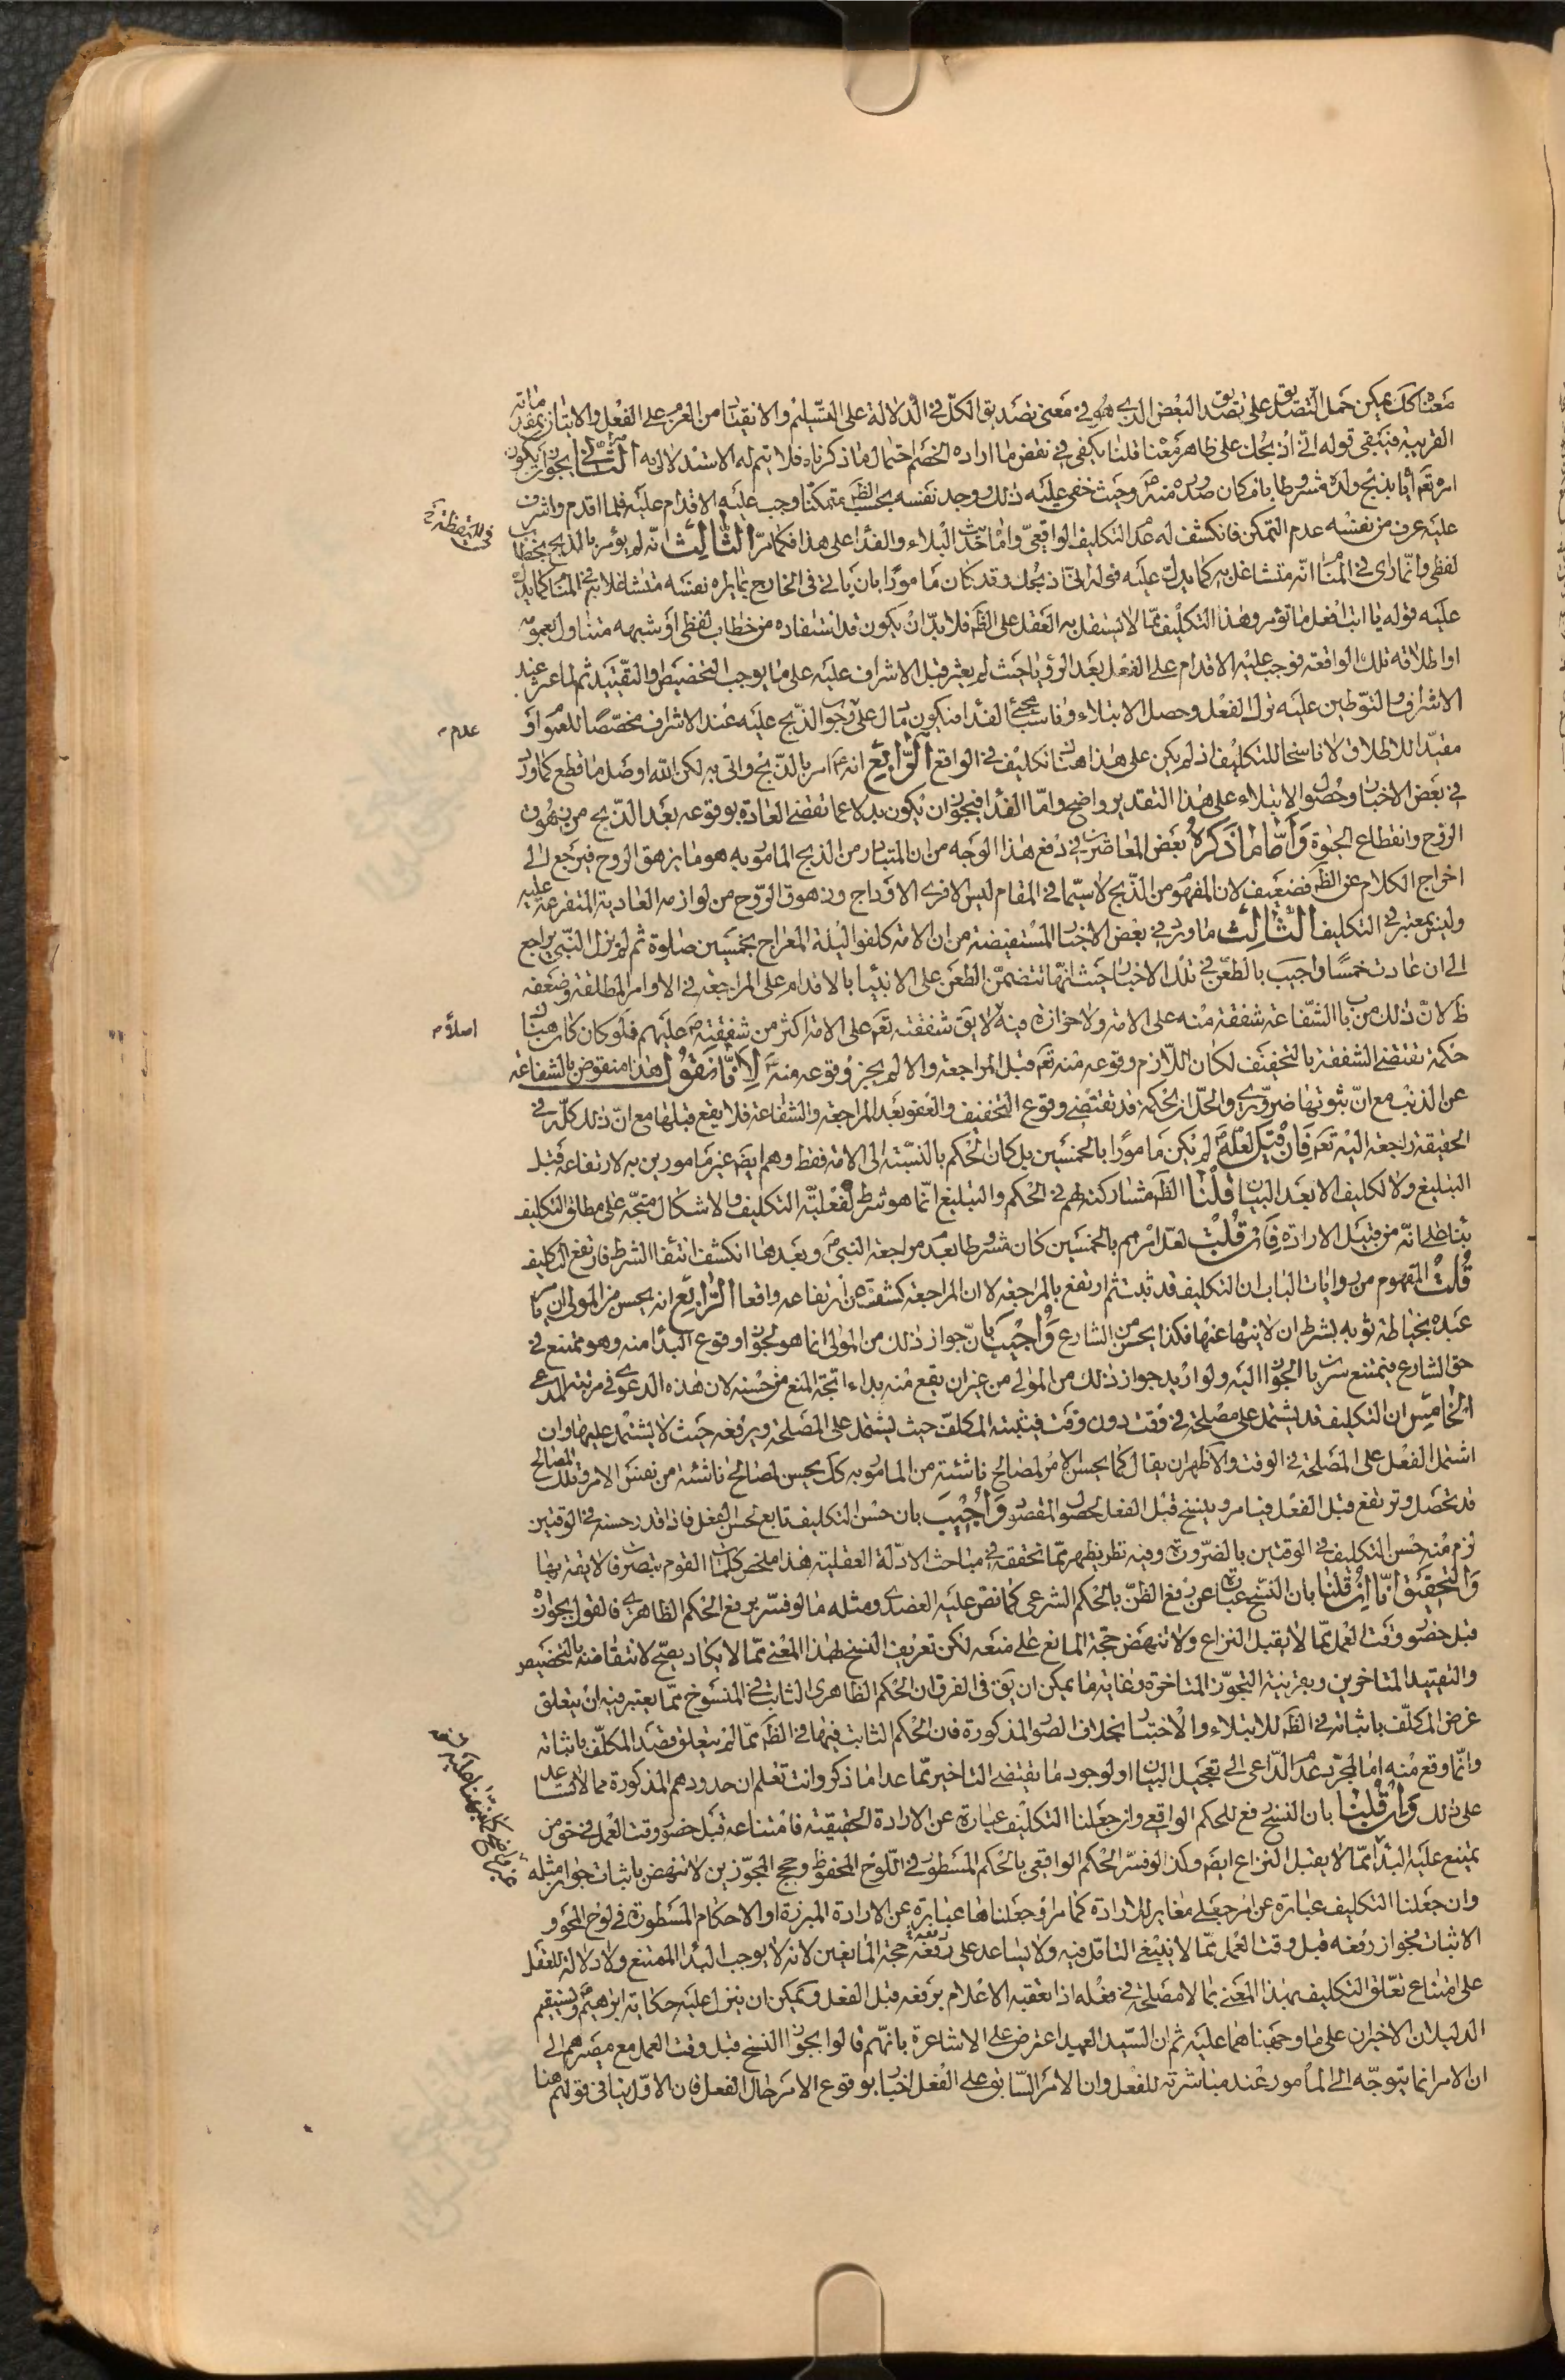 معناه كك يمكن حمل التصديق على تصديق البعض الذي هو في معنى تصديق الكل في الدلالة على التسليم والانقياد من العزم على الفعل والاتيان بمقدماته
القريبة فيبقى قوله انى اذبحك على ظاهر معناه قلنا يكفى في نقض ما اراده الخصم احتمال ما ذكرناه فلا يتم له الاستدلال به الثانى يجوز ان يكون
امره تعم اياه بذبح ولده مشروطا بامكان صدوره منه وحيث خفى عليه ذلك ووجد نفسه بحسب الظ متمكنا وجب عليه الاقدام عليه فلما اقدم واشرف
عليه عرف من نفسه عدم التمكن فانكشف له عدم التكليف الواقعى واما حديث البلاء والفداء على هذا فكما مر الثالث انه لم يؤمر بالذبح بخطاب
لفظى وانما راى في المنام انه متشاغل به كما يدل عليه قوله انى اذبحك وقد كان مامورا بان ياتى في الخارج بما يراه نفسه متشاغلا به في المنام كما يدل
عليه قوله يا ابت افعل ما تؤمر وهذا التكليف مما لا يستقل به العقل على الظ فلا بد ان يكون قد استفاده من خطاب لفظى او شبهه متناول بعمومه
او اطلاقه تلك الواقعة فوجب عليه الاقدام على الفعل بعد الرؤيا حيث لم يعثر قبل الاشراف عليه على ما يوجب التخصيص والتقييد ثم لما عثر عند
الاشراف والتوطين عليه ترك الفعل وحصل الابتلاء وناسب مجئ الفداء فيكون ما دل على وجوب الذبح عليه عند الاشراف مخصصا للعموم او
مقيدا للاطلاق لا ناسخا للتكليف اذ لم يكن على هذا هناك تكليف في الواقع الرابع انه ع امر بالذبح واتى به لكن الله اوصل ما قطع كما ورد
في بعض الاخبار وحصول الابتلاء على هذا التقدير واضح واما الفداء فيجوز ان يكون بدلا عما تقضى العادة بوقوعه بعد الذبح من زهوق
الروح وانقطاع الحيوة وأما ما ذكره بعض المعاصرين في دفع هذا الوجه من ان المتبادر من الذبح المامور به هو ما يزهق الروح فيرجع الى
اخراج الكلام عن الظ فضعيف لان المفهوم من الذبح لا سيما في المقام ليس الا فرى الاوداج وزهوق الروح من لوازمه العادية المتفرعة عليه
وليس بمعتبر في التكليف الثالث ما ورد في بعض الاخبار المستفيضة من ان الامة كلفوا ليلة المعراج بخمسين صلوة ثم لم يزل النبى يراجع
الى ان عادت خمسا واجيب بالطعن في تلك الاخبار حيث انها تتضمن الطعن على الانبياء بالاقدام على المراجعة في الاوامر المطلقة وضعفه
ظ لان ذلك من باب الشفاعة شفقة منه على الامة ولا حزازة فيه لا يق شفقته تعم على الامة اكثر من شفقته ص عليهم فلو كان هناك
حكمة تقتضى الشفقة بالتخفيف لكان اللازم وقوعه منه تعم قبل المراجعة والا لم يجز وقوعه منه لانا نقول هذا منقوض بالشفاعة
عن الذنب مع ان ثبوتها ضرورى والحل ان الحكمة قد تقتضى وقوع التخفيف والعفو بعد المراجعة والشفاعة فلا يقع قبلها مع ان ذلك كله في
الحقيقة راجعة اليه تعم فان قيل لعله لم يكن مامورا بالخمسين بل كان الحكم بالنسبة الى الامة فقط وهم ايضم غير مامورين به لارتفاعه قبل
التبليغ ولا تكليف الا بعد البيان قلنا الظ مشاركته لهم في الحكم والتبليغ انما هو شرط لفعلية التكليف والاشكال متجه على مطلق التكليف
بناء على انه من قبيل الارادة فان قلت لعل امرهم بالخمسين كان مشروطا بعدم مراجعة النبى وبعدها انكشف انتفاء الشرط فارتفع التكليف
قلت المفهوم من روايات الباب ان التكليف قد ثبت ثم ارتفع بالمراجعة لا ان المراجعة كشفت عن ارتفاعه واقعا الرابع انه يحسن من المولى ان يامر
عبده بخياطة ثوبه بشرط ان لا ينهاه عنها فكذا يحسن من الشارع وأجيب بان جواز ذلك من المولى انما هو لجواز وقوع البداء منه وهو ممتنع في
حق الشارع فيمتنع سريان الجواز اليه ولو اريد جواز ذلك من المولى من غير ان يقع منه بداء اتجه المنع من حسنه لان هذه الدعوى في مرتبة المدعى
الخامس ان التكليف قد يشتمل على مصلحة في وقت دون وقت فيثبته المكلف حيث يشتمل على المصلحة ويرفعه حيث لا يشتمل عليها وان
اشتمل الفعل على المصلحة في الوقت والاظهر ان يقال كما يحسن الامر لمصالح ناشئة من المامور به كك يحسن لمصالح ناشئة من نفس الامر وتلك المصالح
قد تحصل وترتفع قبل الفعل فيامر وينسخ قبل الفعل لحصول المقصود وأجيب بان حسن التكليف تابع لحسن الفعل فاذا قدر حسنه في الوقتين
لزم منه حسن التكليف في الوقتين بالضرورة وفيه نظر يظهر مما نحققه في مباحث الادلة العقلية هذا ملخص كلمات القوم بتصرف فلا يقة بها
والتحقيق انا ان قلنا بان النسخ عبارة عن رفع الظن بالحكم الشرعى كما نص عليه العضدى ومثله ما لو فسر برفع الحكم الظاهرى فالقول بجوازه
قبل حضور وقت العمل مما لا يقبل النزاع ولا تنهض حجة المانع على منعه لكن تعريف النسخ بهذا المعنى مما لا يكاد يصح لانتقاضه بالتخصيص
والتقييد المتاخرين وبقرينة التجوز المتاخرة وغاية ما يمكن ان يق في الفرق ان الحكم الظاهرى الثابت في المنسوخ مما يعتبر فيه ان يتعلق
غرض المكلف باثباته في الظ للابتلاء والاختبار بخلاف الصور المذكورة فان الحكم الثابت فيها في الظ مما لم يتعلق قصد المكلف باثباته
وانما وقع منه اما لمجرد عدم الداعى الى تعجيل البيان او لوجود ما يقتضى التاخير مما عدا ما ذكر وانت تعلم ان حدودهم المذكورة مما لا تساعد
على ذلك وان قلنا بان النسخ رفع للحكم الواقعى وان جعلنا التكليف عبارة عن الارادة الحقيقية فامتناعه قبل حضور وقت العمل في حق من
يمتنع عليه البداء مما لا يقبل النزاع ايضم وكذا لو فسر الحكم الواقعى بالحكم المسطور في اللوح المحفوظ وحجج المجوزين لا تنهض باثبات جواز مثله
وان جعلنا التكليف عبارة عن امر جعلى مغاير للارادة كما مر او جعلناها عبارة عن الارادة المبرزة او الاحكام المسطورة في لوح المحو و
الاثبات فجواز رفعه قبل وقت العمل مما لا ينبغى التامل فيه ولا يساعد على رفعه حجة المانعين لانه لا يوجب البداء الممتنع ولا دلالة للعقل
على امتناع تعلق التكليف بهذا المعنى بما لا مصلحة في فعله اذا تعقبه الاعلام برفعه قبل الفعل ويمكن ان ينزل عليه حكاية ابراهيم ويستقيم
الدليلان الاخيران على ما وجهناهما عليه ثم ان السيد العميد اعترض على الاشاعرة بانهم قالوا بجواز النسخ قبل وقت العمل مع مصيرهم الى
ان الامر انما يتوجه الى المأمور عند مباشرته للفعل وان الامر السابق على الفعل اخبار بوقوع الامر حال الفعل فان الاول ينافى قولهم هنا
عدم
اصلا